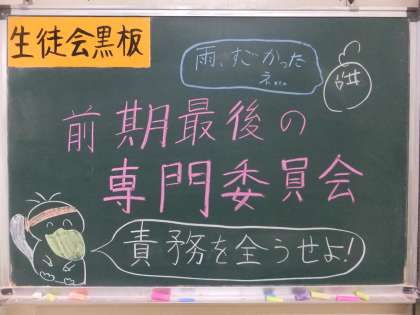 生徒会黒板
雨、すごかった
ネ…
前期最後の
専門委員会
責務を全うせよ!